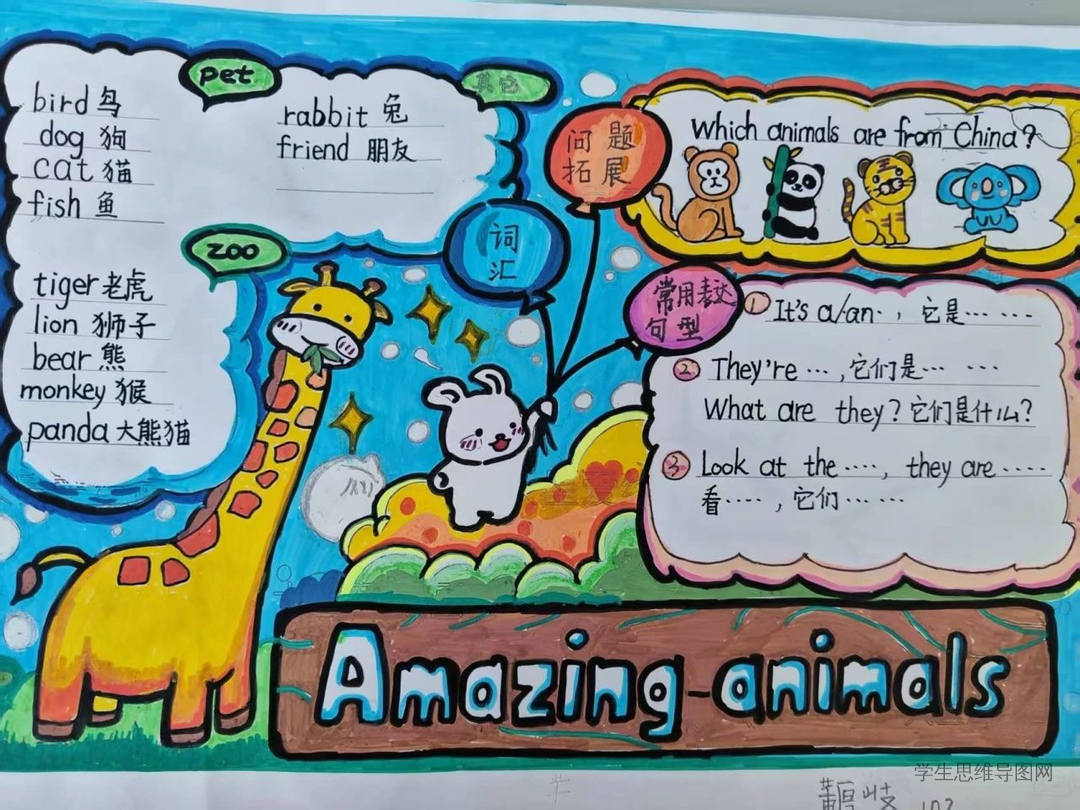 pet
bird 鸟
dog 狗
cat 猫
fish 鱼
其它
rabbit 兔
friend 朋友
zoo
tiger 老虎
lion 狮子
bear 熊
monkey 猴
panda 大熊猫
词
汇
问题
拓展
Which animals are from China?
常用表达
句型
① It's a/an·, 它是… …
② They're …, 它们是… …
What are they? 它们是什么?
③ Look at the ····, they are ·····
看·····, 它们··· ···
Amazing animals
学生思维导图网